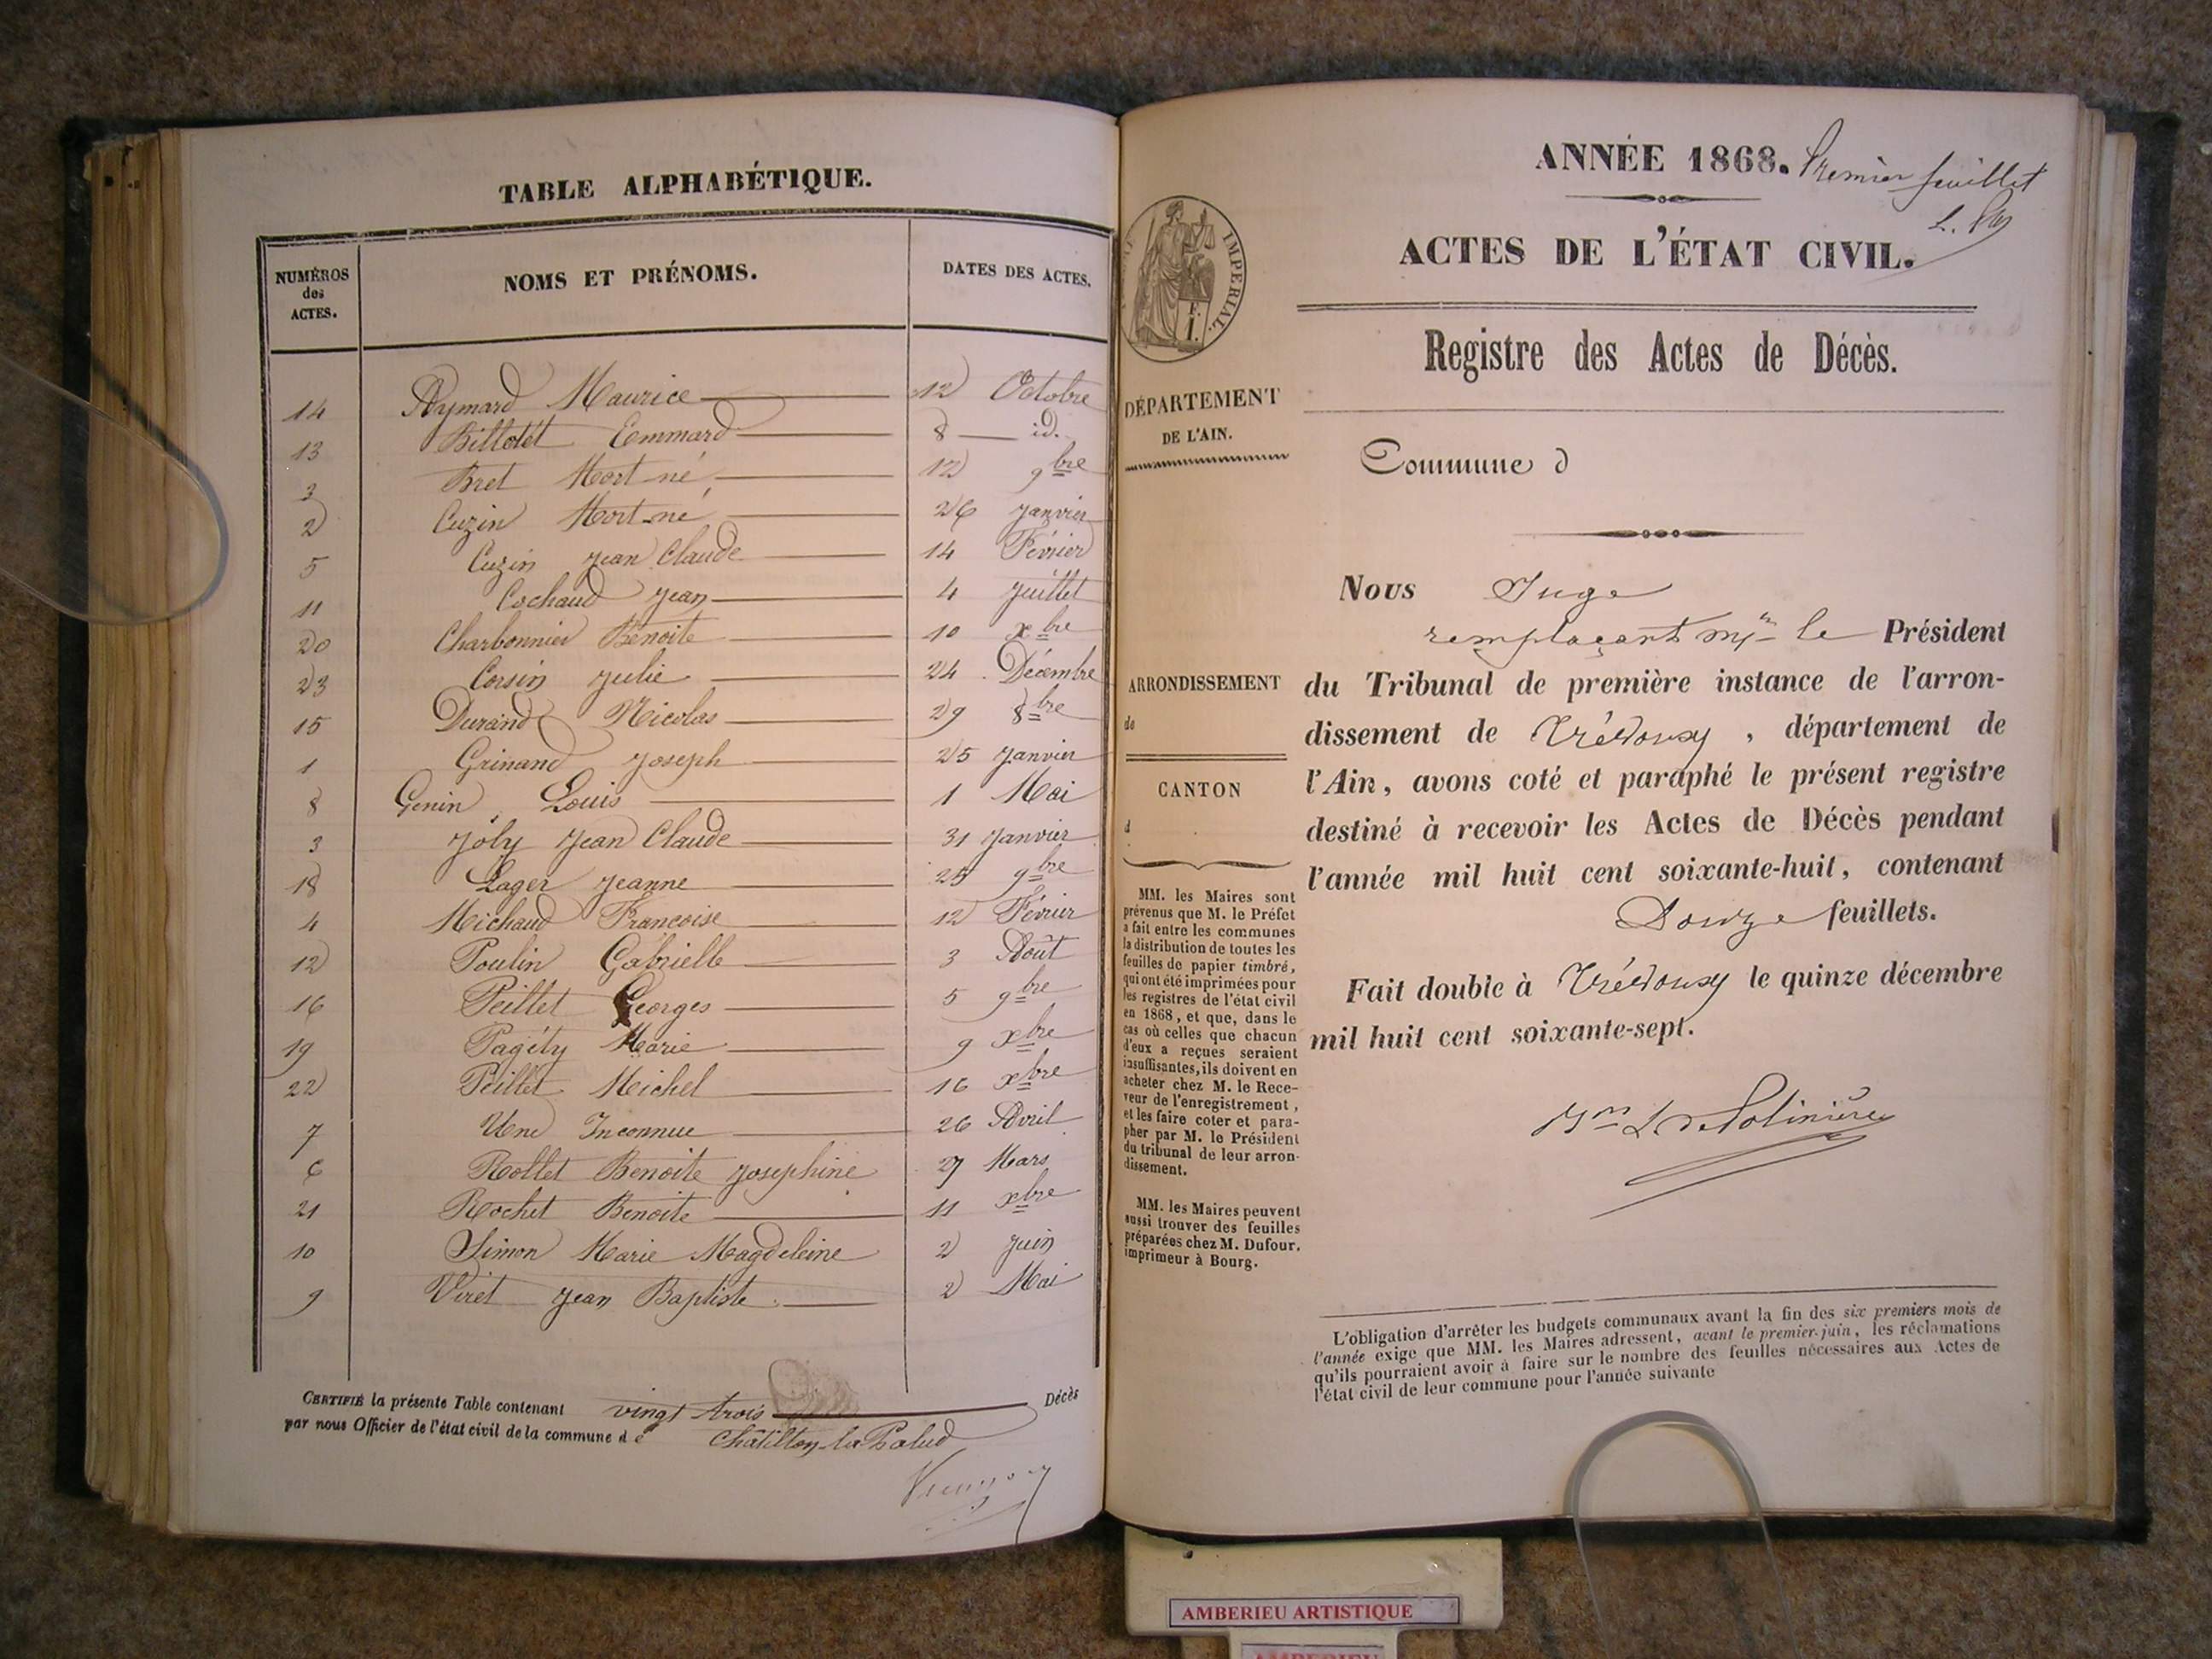 TABLE ALPHABÉTIQUE.
NUMÉROS des ACTES. NOMS ET PRÉNOMS. DATES DES ACTES.
14 Aymard Maurice 12 Octobre
13 Billotet Emmard 8 id.
3 Bret Mort né 12 9bre
2 Cuzin Mort-né 26 Janvier
5 Cuzin Jean Claude 14 Février
11 Cochaud Jean 4 Juillet
20 Charbonnier Benoite 10 xbre
23 Corsin Julie 24 Décembre
15 Durand Nicolas 29 8bre
1 Grinand Joseph 25 Janvier
8 Genin Louis 1 Mai
3 Joly Jean Claude 31 Janvier
18 Lager Jeanne 25 9bre
4 Michaud Françoise 12 Février
12 Poulin Gabrielle 3 Août
16 Peillet Georges 5 9bre
19 Pagéty Marie 9 xbre
22 Peillet Michel 16 xbre
7 Une Inconnue 26 Avril
6 Rollet Benoite Josephine 27 Mars
21 Rochet Benoite 11 xbre
10 Simon Marie Magdeleine 2 Juin
9 Viret Jean Baptiste 2 Mai
CERTIFIÉ la présente Table contenant vingt trois Décès
par nous Officier de l'état civil de la commune de Châtillon-la-Palud
ANNÉE 1868. Premier feuillet
ACTES DE L'ÉTAT CIVIL.
Registre des Actes de Décès.
IMPERIAL.
DÉPARTEMENT
DE L'AIN.
Commune d
Nous Juge
remplaçant Mr le Président
du Tribunal de première instance de l'arron-
dissement de Trévoux, département de
l'Ain, avons coté et paraphé le présent registre
destiné à recevoir les Actes de Décès pendant
l'année mil huit cent soixante-huit, contenant
Douze feuillets.
Fait double à Trévoux le quinze décembre
mil huit cent soixante-sept.
ARRONDISSEMENT
de
CANTON
d
MM. les Maires sont
prévenus que M. le Préfet
a fait entre les communes
la distribution de toutes les
feuilles de papier timbré,
qui ont été imprimées pour
les registres de l'état civil
en 1868, et que, dans le
cas où celles que chacun
d'eux a reçues seraient
insuffisantes, ils doivent en
acheter chez M. le Rece-
veur de l'enregistrement,
et les faire coter et para-
pher par M. le Président
du tribunal de leur arron-
dissement.
MM. les Maires peuvent
aussi trouver des feuilles
préparées chez M. Dufour,
imprimeur à Bourg.
L'obligation d'arrêter les budgets communaux avant la fin des six premiers mois de
l'année exige que MM. les Maires adressent, avant le premier juin, les réclamations
qu'ils pourraient avoir à faire sur le nombre des feuilles nécessaires aux Actes de
l'état civil de leur commune pour l'année suivante
AMBERIEU ARTISTIQUE
AMBERIEU